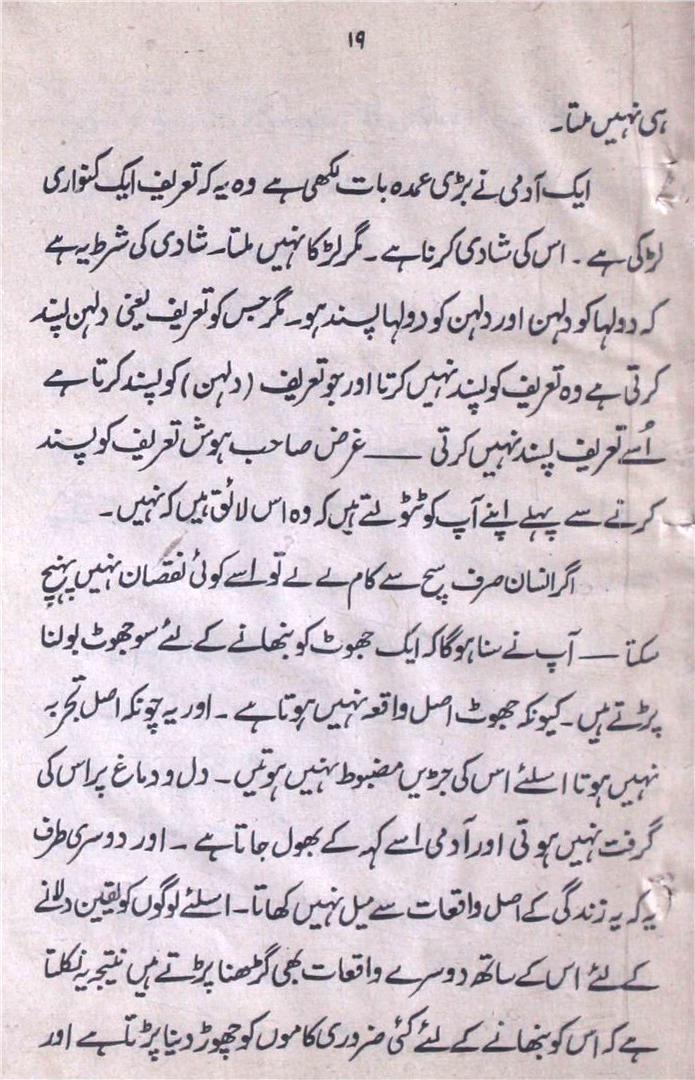 ۱۹
ہی نہیں ملتا۔
ایک آدمی نے بڑی عمدہ بات لکھی ہے وہ یہ کہ تعریف ایک کنواری
لڑکی ہے ۔ اس کی شادی کرنا ہے ۔ مگر لڑکا نہیں ملتا ۔ شادی کی شرط یہ ہے
کہ دولہا کو دلہن اور دلہن کو دولہا پسند ہو۔ مگر جس کو تعریف یعنی دلہن پسند
کرتی ہے وہ تعریف کو پسند نہیں کرتا اور جو تعریف (دلہن) کو پسند کرتا ہے
اُسے تعریف پسند نہیں کرتی —— غرض صاحب ہوش تعریف کو پسند
کرنے سے پہلے اپنے آپ کو ٹٹولتے ہیں کہ وہ اس لائق ہیں کہ نہیں ۔
اگر انسان صرف سچ سے کام لے لے تو اسے کوئی نقصان نہیں پہنچ
سکتا —— آپ نے سنا ہوگا کہ ایک جھوٹ کو نبھانے کے لئے سو جھوٹ بولنا
پڑتے ہیں ۔ کیونکہ جھوٹ اصل واقعہ نہیں ہوتا ہے ۔ اور یہ چونکہ اصل تجربہ
نہیں ہوتا اسلئے اس کی جڑیں مضبوط نہیں ہوتیں ۔ دل و دماغ پر اس کی
گرفت نہیں ہوتی اور آدمی اسے کہہ کے بھول جاتا ہے ۔ اور دوسری طرف
یہ کہ یہ زندگی کے اصل واقعات سے میل نہیں کھاتا۔ اسلئے لوگوں کو یقین دلانے
کے لئے اس کے ساتھ دوسرے واقعات بھی گڑھنا پڑتے ہیں نتیجہ یہ نکلتا
ہے کہ اس کو نبھانے کے لئے کئی ضروری کاموں کو چھوڑ دینا پڑتا ہے اور